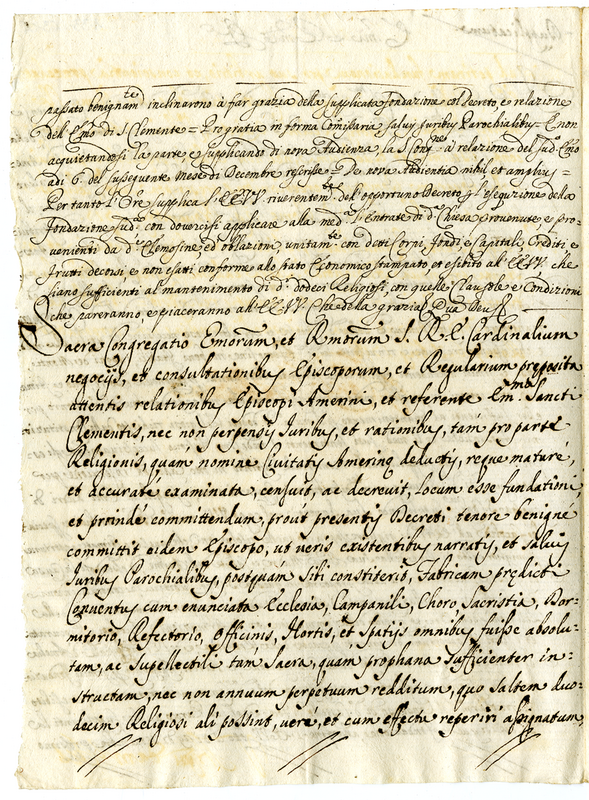 passato benignam.te inclinarono à far grazia della supplicata fondazione col Decreto, e relazione
dell' Em̃o di S. Clemente = Pro gratia in forma Com̃issaria salvis juribus Parochialibus = E non
acquietandosi la parte, e supplicando di nova Audienza, la S. Cong.ne à relazione del sud.o Em̃o
adi 6. del susseguente mese di Decembre rescrisse = De nova Audientia nihil et amplius =
Per tanto l'Ore supplica l'EE.VV. riverentem.te dell'opportuno Decreto p l'esequzione della
fondazione sud.a con doversi applicare alla med.a l'Entrate di d.a Chiesa provenute, e pro=
venienti da d.e Elemosine ed oblazioni unitam.te con detti Corpi, fondi, e Capitali, Crediti e
frutti decorsi e non esatti conforme allo stato Economico stampato, et esibito all'EE.VV. che
siano sufficienti al mantenimento di d.i dodeci Religiosi, con quelle Clausole e Condizioni
che pareranno, e piaceranno all'EE.VV. Che della grazia Qua Deus
Sacra Congregatio Em̃orum, et Rm̃orum S. R. E. Cardinalium
negocijs, et consultationibus Episcoporum, et Regularium preposita
attentis relationibus Episcopi Amerini, et referente Em.mo Sancti
Clementis, nec non perpensis Iuribus, et rationibus, tám pro parte
Religionis, quám nomine Civitatis Amerinę deductis, reque maturé,
et accuraté examinata, censuit, ac decrevit, locum esse fundationi,
et proindé committendum, prout presentis Decreti tenore benigné
committit eidem Episcopo, ut veris existentibus narratis, et salvis
Iuribus Parochialibus, postquám sibi constiterit, Fabricam prędicti
Conventus cum enunciata Ecclesia, Campanili, Choro, Sacristia, Dor=
mitorio, Refectorio, Officinis, Hortis, et spatijs omnibus fuisse absolu=
tam, ac supellectili tám sacra, quam prophana sufficienter in=
structam, nec non annuum perpetuum redditum, quo saltem duo=
decim Religiosi ali possint, veré, et cum effectu reperiri assignatum,